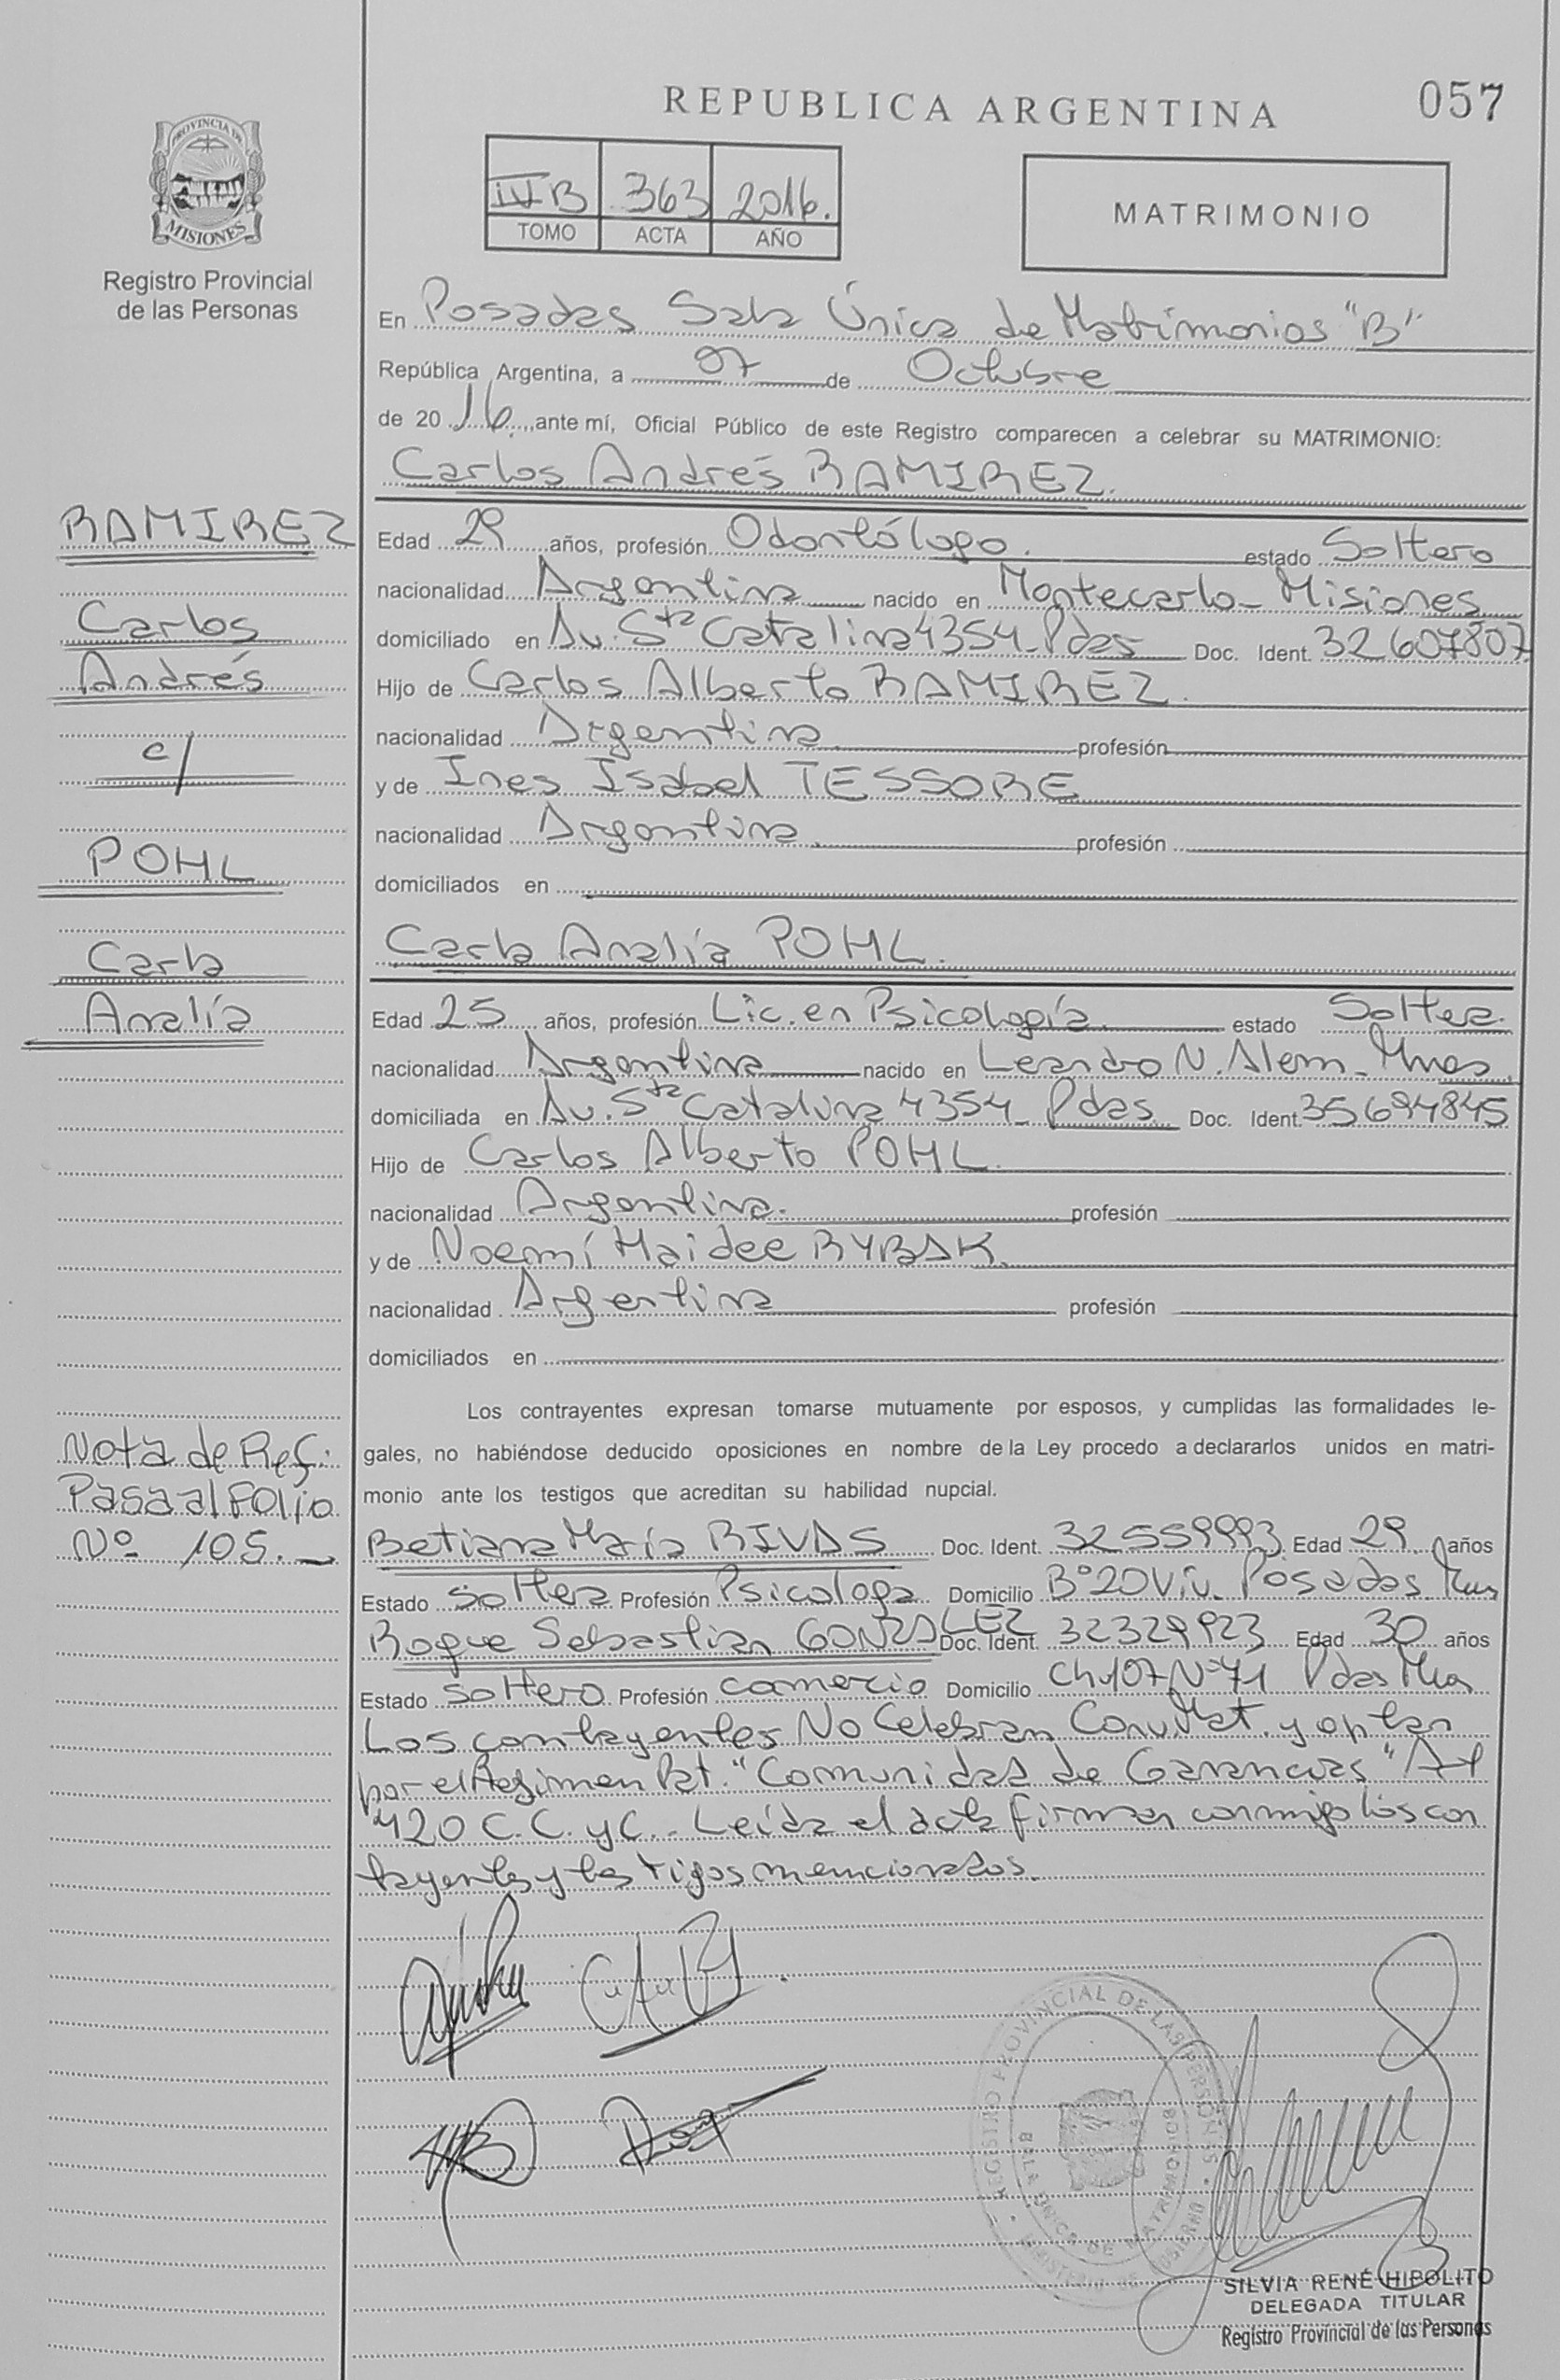 REPUBLICA ARGENTINA
057
PROVINCIA DE
MISIONES
Registro Provincial
de las Personas
IVB 363 2016.
TOMO ACTA AÑO
MATRIMONIO
En Posadas Sala Única de Matrimonios "B"
República Argentina, a 07 de Octubre
de 2016. ante mí, Oficial Público de este Registro comparecen a celebrar su MATRIMONIO:
Carlos Andrés RAMIREZ.
RAMIREZ
Carlos
Andrés
c/
POHL
Carla
Analía
Edad 29 años, profesión Odontólogo. estado Soltero
nacionalidad Argentina nacido en Montecarlo - Misiones
domiciliado en Av. Sta Catalina 4354 - Pdas Doc. Ident. 32607807
Hijo de Carlos Alberto RAMIREZ.
nacionalidad Argentina profesión
y de Ines Isabel TESSORE
nacionalidad Argentina profesión
domiciliados en
Carla Analía POHL.
Edad 25 años, profesión Lic. en Psicología. estado Soltera.
nacionalidad Argentina nacido en Leandro N. Alem - Mnes.
domiciliada en Av. Sta Catalina 4354 - Pdas Doc. Ident. 35694845
Hijo de Carlos Alberto POHL.
nacionalidad Argentina. profesión
y de Noemí Haidee RYBAK.
nacionalidad Argentina profesión
domiciliados en
Los contrayentes expresan tomarse mutuamente por esposos, y cumplidas las formalidades le-
gales, no habiéndose deducido oposiciones en nombre de la Ley procedo a declararlos unidos en matri-
monio ante los testigos que acreditan su habilidad nupcial.
Nota de Ref:
Pasa al Folio
Nº 105.-
Betiana María RIVAS Doc. Ident. 32559993 Edad 29. años
Estado soltera Profesión Psicologa Domicilio Bº 20 Viv. Posadas. Mns
Roque Sebastian GONZALEZ Doc. Ident. 32329923 Edad 30 años
Estado soltero Profesión comercio Domicilio Ch 107 Nº 71 Pdas Mns
Los contrayentes No Celebran Conv. Mat. y optan
por el Regimen Pat. "Comunidad de Ganancias" Art
420 C.C. y C.. Leída el acta firman conmigo los con
trayentes y testigos mencionados.
REGISTRO PROVINCIAL DE LAS PERSONAS
SALA UNICA DE MATRIMONIOS
MINISTERIO DE GOBIERNO
SILVIA RENÉ HIPOLITO
DELEGADA TITULAR
Registro Provincial de las Personas